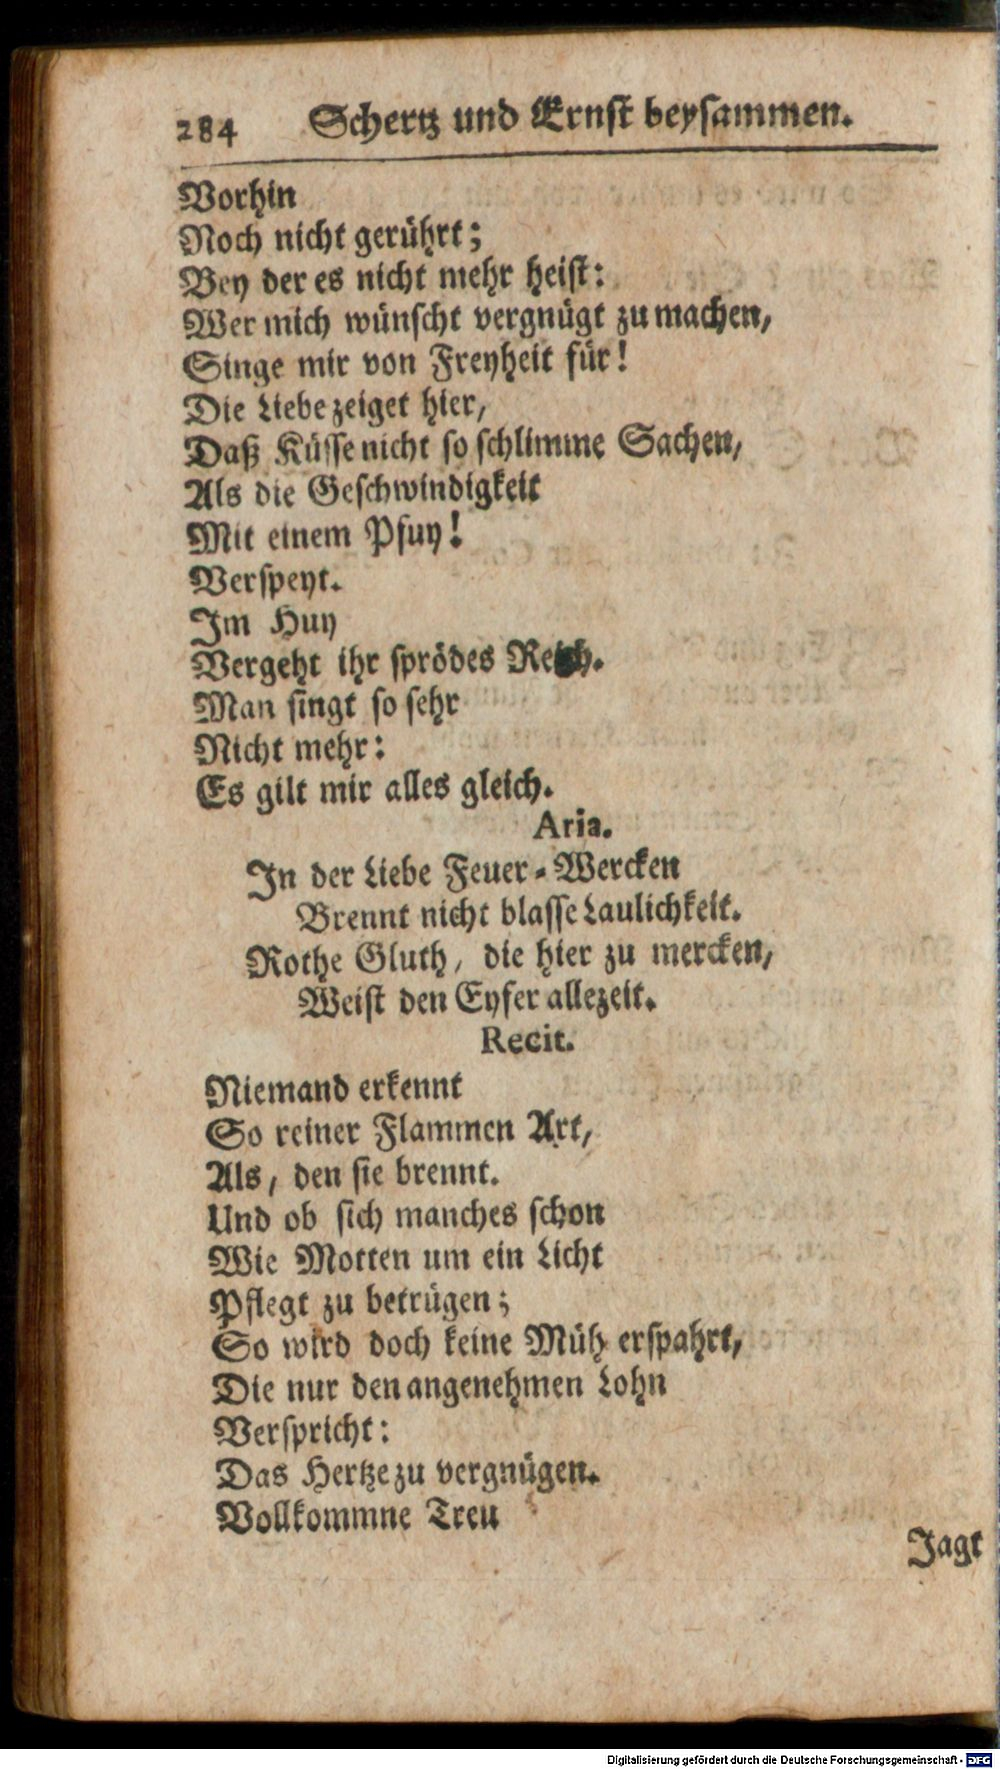 284 Schertz und Ernst beysammen.
Vorhin
Noch nicht gerührt;
Bey der es nicht mehr heist:
Wer mich wünscht vergnügt zu machen,
Singe mir von Freyheit für!
Die Liebe zeiget hier,
Daß Küsse nicht so schlimme Sachen,
Als die Geschwindigkeit
Mit einem Pfuy!
Verspeyt.
Im Huy
Vergeht ihr sprödes Reich.
Man singt so sehr
Nicht mehr:
Es gilt mir alles gleich.
Aria.
In der Liebe Feuer-Wercken
Brennt nicht blasse Laulichkeit.
Rothe Gluth, die hier zu mercken,
Weist den Eyfer allezeit.
Recit.
Niemand erkennt
So reiner Flammen Art,
Als, den sie brennt.
Und ob sich manches schon
Wie Motten um ein Licht
Pflegt zu betrügen;
So wird doch keine Müh erspahrt,
Die nur den angenehmen Lohn
Verspricht:
Das Hertze zu vergnügen.
Vollkommne Treu
Jagt
Digitalisierung gefördert durch die Deutsche Forschungsgemeinschaft - DFG